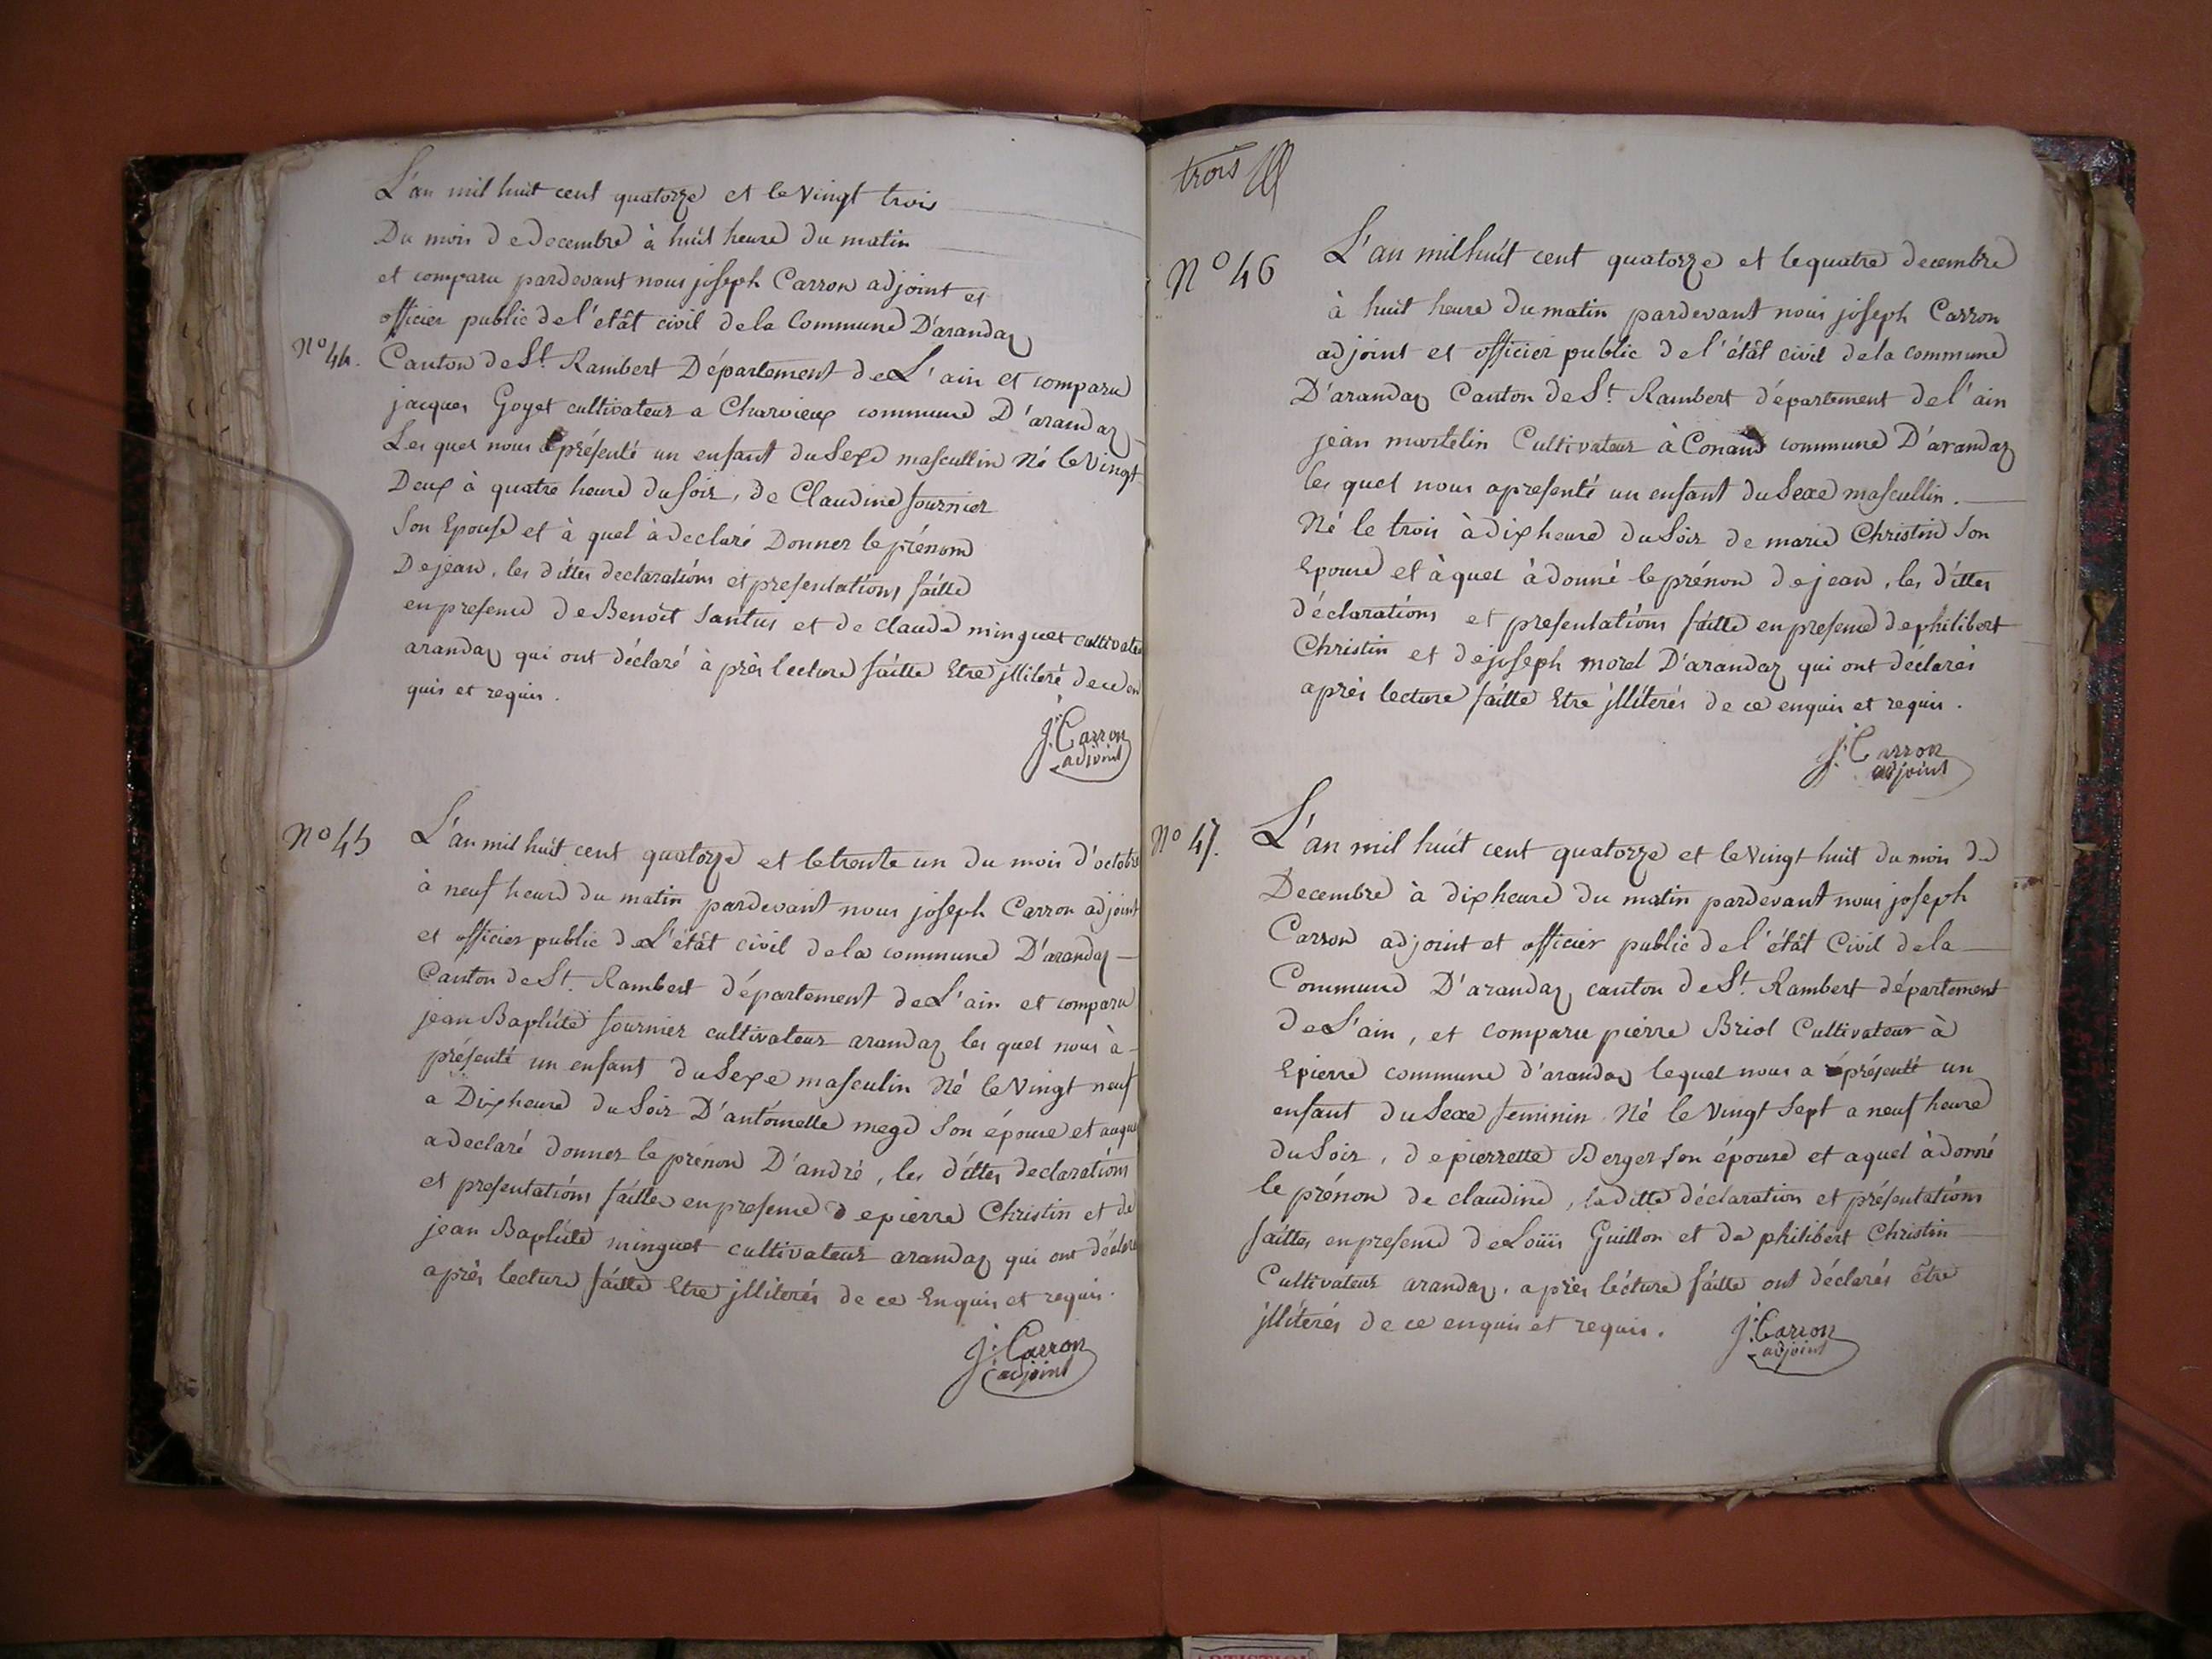 L'an mil huit cent quatorze et le vingt trois
Du mois de decembre à huit heure du matin
et comparu pardevant nous joseph Carron adjoint et
officier public de l'etât civil dela Commune D'arandaz
N° 44.
Canton de St. Rambert Département de L'ain et comparu
jacques Goyet cultivateur a Charvieux commune D'arandaz
Les quel nous présenté un enfant du Sexe mascullin Né le vingt
Deux à quatre heure du soir, de Claudine fournier
Son Epouse et à quel à declaré Donner le prénom
De jean, les dittes declarations et presentations faitte
en presence de Benoît Santus et de claude minguet cultivateu
arandaz qui ont déclaré à près lecture faitte Etre jlliteré de ce en
quis et requis.
J. Carron
adjoint
N° 45
L'an mil huit cent quatorze et le trente un du mois d'octobre
à neuf heure du matin pardevant nous joseph Carron adjoint
et officier public de L'étât civil dela commune D'arandaz
Canton de St. Rambert département de L'ain et comparu
jean Baptiste fournier cultivateur arandaz les quel nous à
présenté un enfant du Sexe masculin Né le vingt neuf
a Dix heure du Soir D'antoinette mege Son épouse et auque
a declaré donner le prénom D'andré, les dittes declarations
et presentations faitte en presence de pierre Christin et de
jean Baptiste minguet cultivateur arandaz qui ont déclaré
après lecture faitte Etre jlliterés de ce Enquis et requis.
J. Carron
adjoint
trois
N° 46
L'an mil huit cent quatorze et le quatre decembre
à huit heure du matin pardevant nous joseph Carron
adjoint et officier public de l'étât civil dela commune
D'arandaz Canton de St. Rambert département de l'ain
jean martelin Cultivateur à Conand commune D'arandaz
les quel nous apresenté un enfant du Sexe mascullin.
Né le trois à dix heure du Soir de marie Christin Son
Epouse et à quel à donné le prénom de jean, les dittes
déclarations et presentations faitte en presence de philibert
Christin et de joseph morel D'arandaz qui ont déclarés
après lecture faitte Etre jllitérés de ce enquis et requis.
J. Carron
adjoint
N° 47.
L'an mil huit cent quatorze et le vingt huit du mois de
Decembre à dix heure du matin pardevant nous joseph
Carron adjoint et officier public de l'étât Civil dela
Commune D'arandaz canton de St. Rambert département
de L'ain, et comparu pierre Briol Cultivateur à
Epierre commune d'arandaz lequel nous a présenté un
enfant du Sexe feminin Né le vingt Sept a neuf heure
du Soir, de pierrette Berger son épouse et aquel à donné
le prénon de claudine, la ditte déclaration et présentations
faittes en presence de Loüis Guillon et de philibert Christin
Cultivateur arandaz. après lécture faitte ont déclarés être
jllitérés de ce enquis et requis.
J. Carron
adjoint